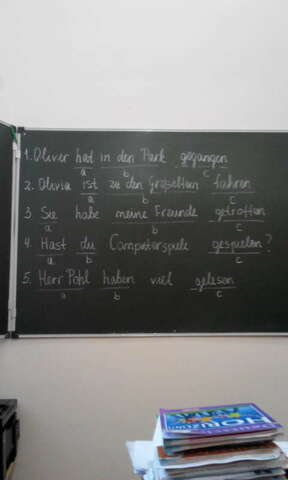 1. Oliver hat in den Park gegangen
a b c
2. Olivia ist zu den Großeltern fahren
a b c
3 Sie habe meine Freunde getroffen
a b c
4. Hast du Computerspiele gespielen?
a b c
5. Herr Pohl haben viel gelesen
a b c